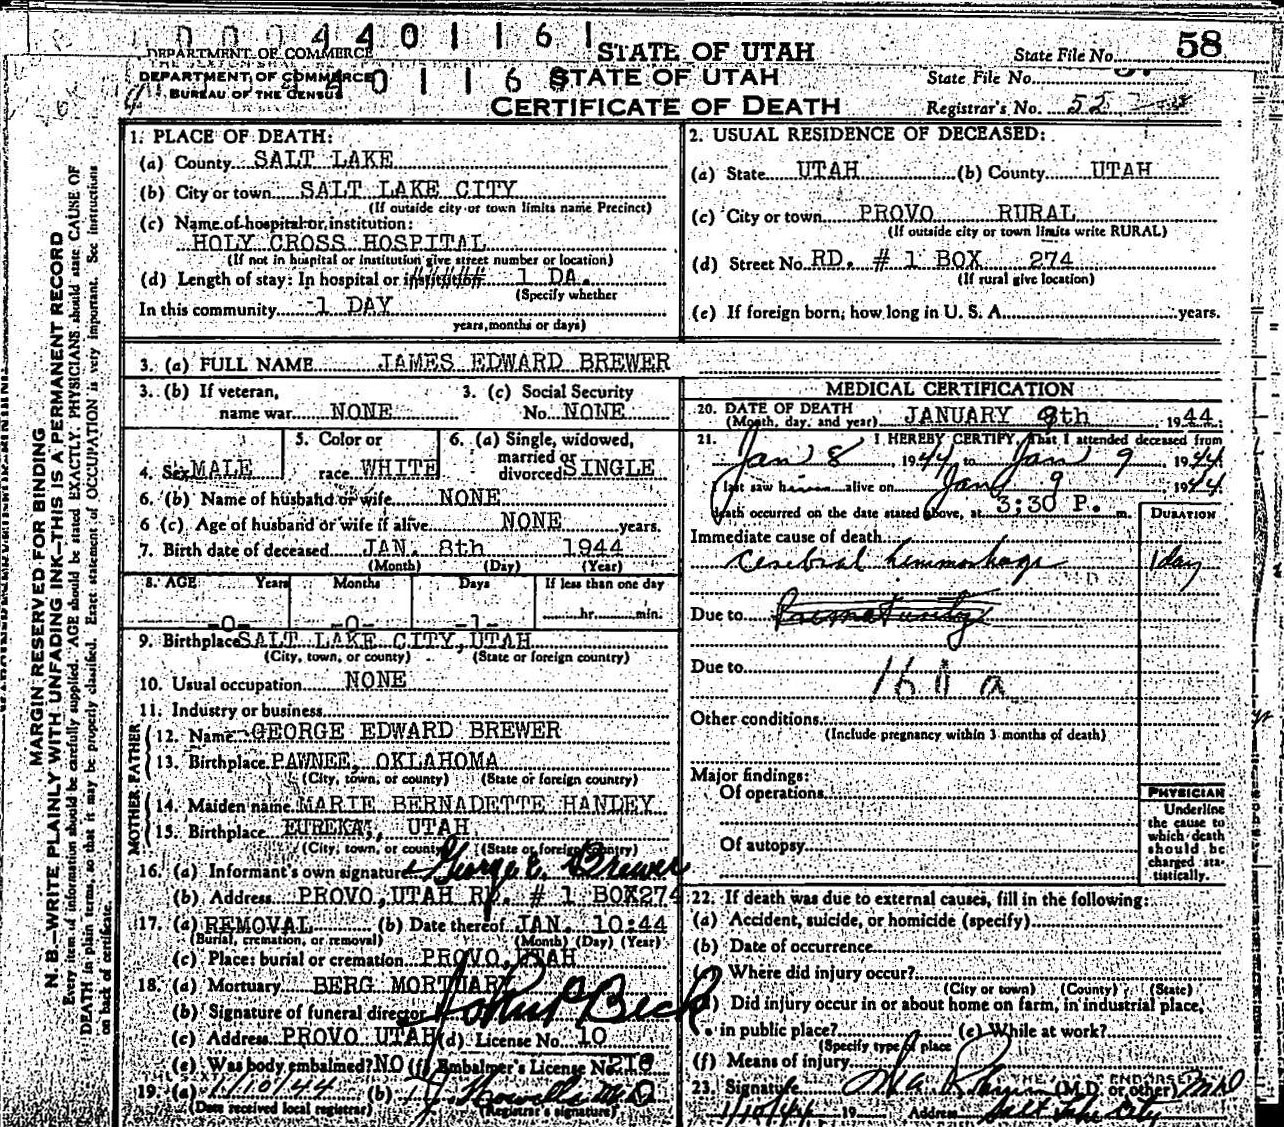 0004401161
DEPARTMENT OF COMMERCE STATE OF UTAH State File No. 58
DEPARTMENT OF COMMERCE STATE OF UTAH State File No.
BUREAU OF THE CENSUS
CERTIFICATE OF DEATH Registrar's No. 52
MARGIN RESERVED FOR BINDING
N. B.—WRITE PLAINLY WITH UNFADING INK—THIS IS A PERMANENT RECORD
Every item of information should be carefully supplied. AGE should be stated EXACTLY. PHYSICIANS should state CAUSE OF
DEATH in plain terms, so that it may be properly classified. Exact statement of OCCUPATION is very important. See instructions
on back of certificate.
1. PLACE OF DEATH:
(a) County SALT LAKE
(b) City or town SALT LAKE CITY
(If outside city or town limits name Precinct)
(c) Name of hospital or institution:
HOLY CROSS HOSPITAL
(If not in hospital or institution give street number or location)
(d) Length of stay: In hospital or institution 1 DA.
(Specify whether
In this community 1 DAY
years, months or days)
2. USUAL RESIDENCE OF DECEASED:
(a) State UTAH (b) County UTAH
(c) City or town PROVO RURAL
(If outside city or town limits write RURAL)
(d) Street No. RD. # 1 BOX 274
(If rural give location)
(e) If foreign born, how long in U. S. A. years.
3. (a) FULL NAME JAMES EDWARD BREWER
3. (b) If veteran, 3. (c) Social Security
name war NONE No. NONE
4. Sex MALE
5. Color or
race WHITE
6. (a) Single, widowed,
married or
divorced SINGLE
6. (b) Name of husband or wife NONE
6 (c). Age of husband or wife if alive NONE years.
7. Birth date of deceased JAN. 8th 1944
(Month) (Day) (Year)
8. AGE Years Months Days If less than one day
-0- -0- -1- hr. min.
9. Birthplace SALT LAKE CITY, UTAH
(City, town, or county) (State or foreign country)
10. Usual occupation NONE
11. Industry or business
FATHER
12. Name GEORGE EDWARD BREWER
13. Birthplace PAWNEE, OKLAHOMA
(City, town, or county) (State or foreign country)
MOTHER
14. Maiden name MARIE BERNADETTE HANLEY
15. Birthplace EUREKA, UTAH
(City, town, or county) (State or foreign country)
16. (a) Informant's own signature George E. Brewer
(b) Address PROVO, UTAH RD. # 1 BOX 274
17. (a) REMOVAL (b) Date thereof JAN. 10:44
(Burial, cremation, or removal) (Month) (Day) (Year)
(c) Place: burial or cremation PROVO, UTAH
18. (a) Mortuary BERG MORTUARY
(b) Signature of funeral director
(c) Address PROVO UTAH (d) License No. 10
(e) Was body embalmed? NO (f) Embalmer's License No.
19. (a) 1/10/44 (b)
(Date received local registrar) (Registrar's signature)
MEDICAL CERTIFICATION
20. DATE OF DEATH
(Month, day, and year) JANUARY 9th 1944
21. I HEREBY CERTIFY, That I attended deceased from
Jan 8, 1944 to Jan 9, 1944
I last saw him alive on Jan 9 1944
death occurred on the date stated above, at 3:30 P. m.
DURATION
Immediate cause of death
Cerebral hemorrhage 1 day
Due to Prematurity
Due to
160 a
Other conditions
(Include pregnancy within 3 months of death)
Major findings:
Of operations
Of autopsy
PHYSICIAN
Underline
the cause to
which death
should be
charged sta-
tistically.
22. If death was due to external causes, fill in the following:
(a) Accident, suicide, or homicide (specify)
(b) Date of occurrence
(c) Where did injury occur?
(City or town) (County) (State)
(d) Did injury occur in or about home on farm, in industrial place,
in public place? (e) While at work?
(Specify type of place
(f) Means of injury
23. Signature (M.D. or other)
1/10/44 19 Address Salt Lake City